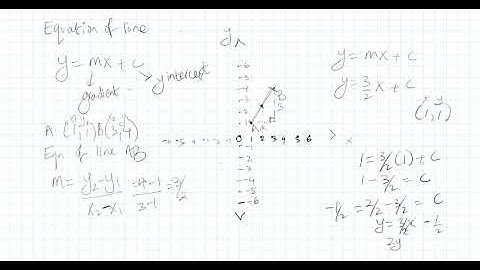 Equation of line
y = mx + c
gradient
y intercept
A (1,1) B(3,4)
Eqn of line AB
m = y2-y1 / x2-x1 = 4-1 / 3-1 = 3/2
y
-6
-5
-4
-3
-2
-1
0 1 2 3 4 5 6 > x
-2
-3
-4
-5
-6
A
B
3
y = mx + c
y = 3/2 x + c
x y
(1,1)
1 = 3/2 (1) + c
1 - 3/2 = c
-1/2 = 2/2 - 3/2 = c
y = 3/2 x - 1/2
2y